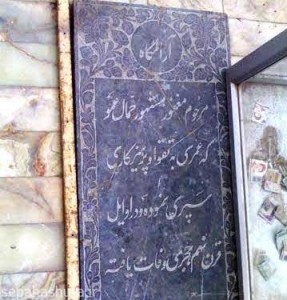 آرامگاه
مرحوم مغفور
که عمری به تقوا و پرهیزکاری
سپری نموده و در اوایل
قرن نهم هجری وفات یافته